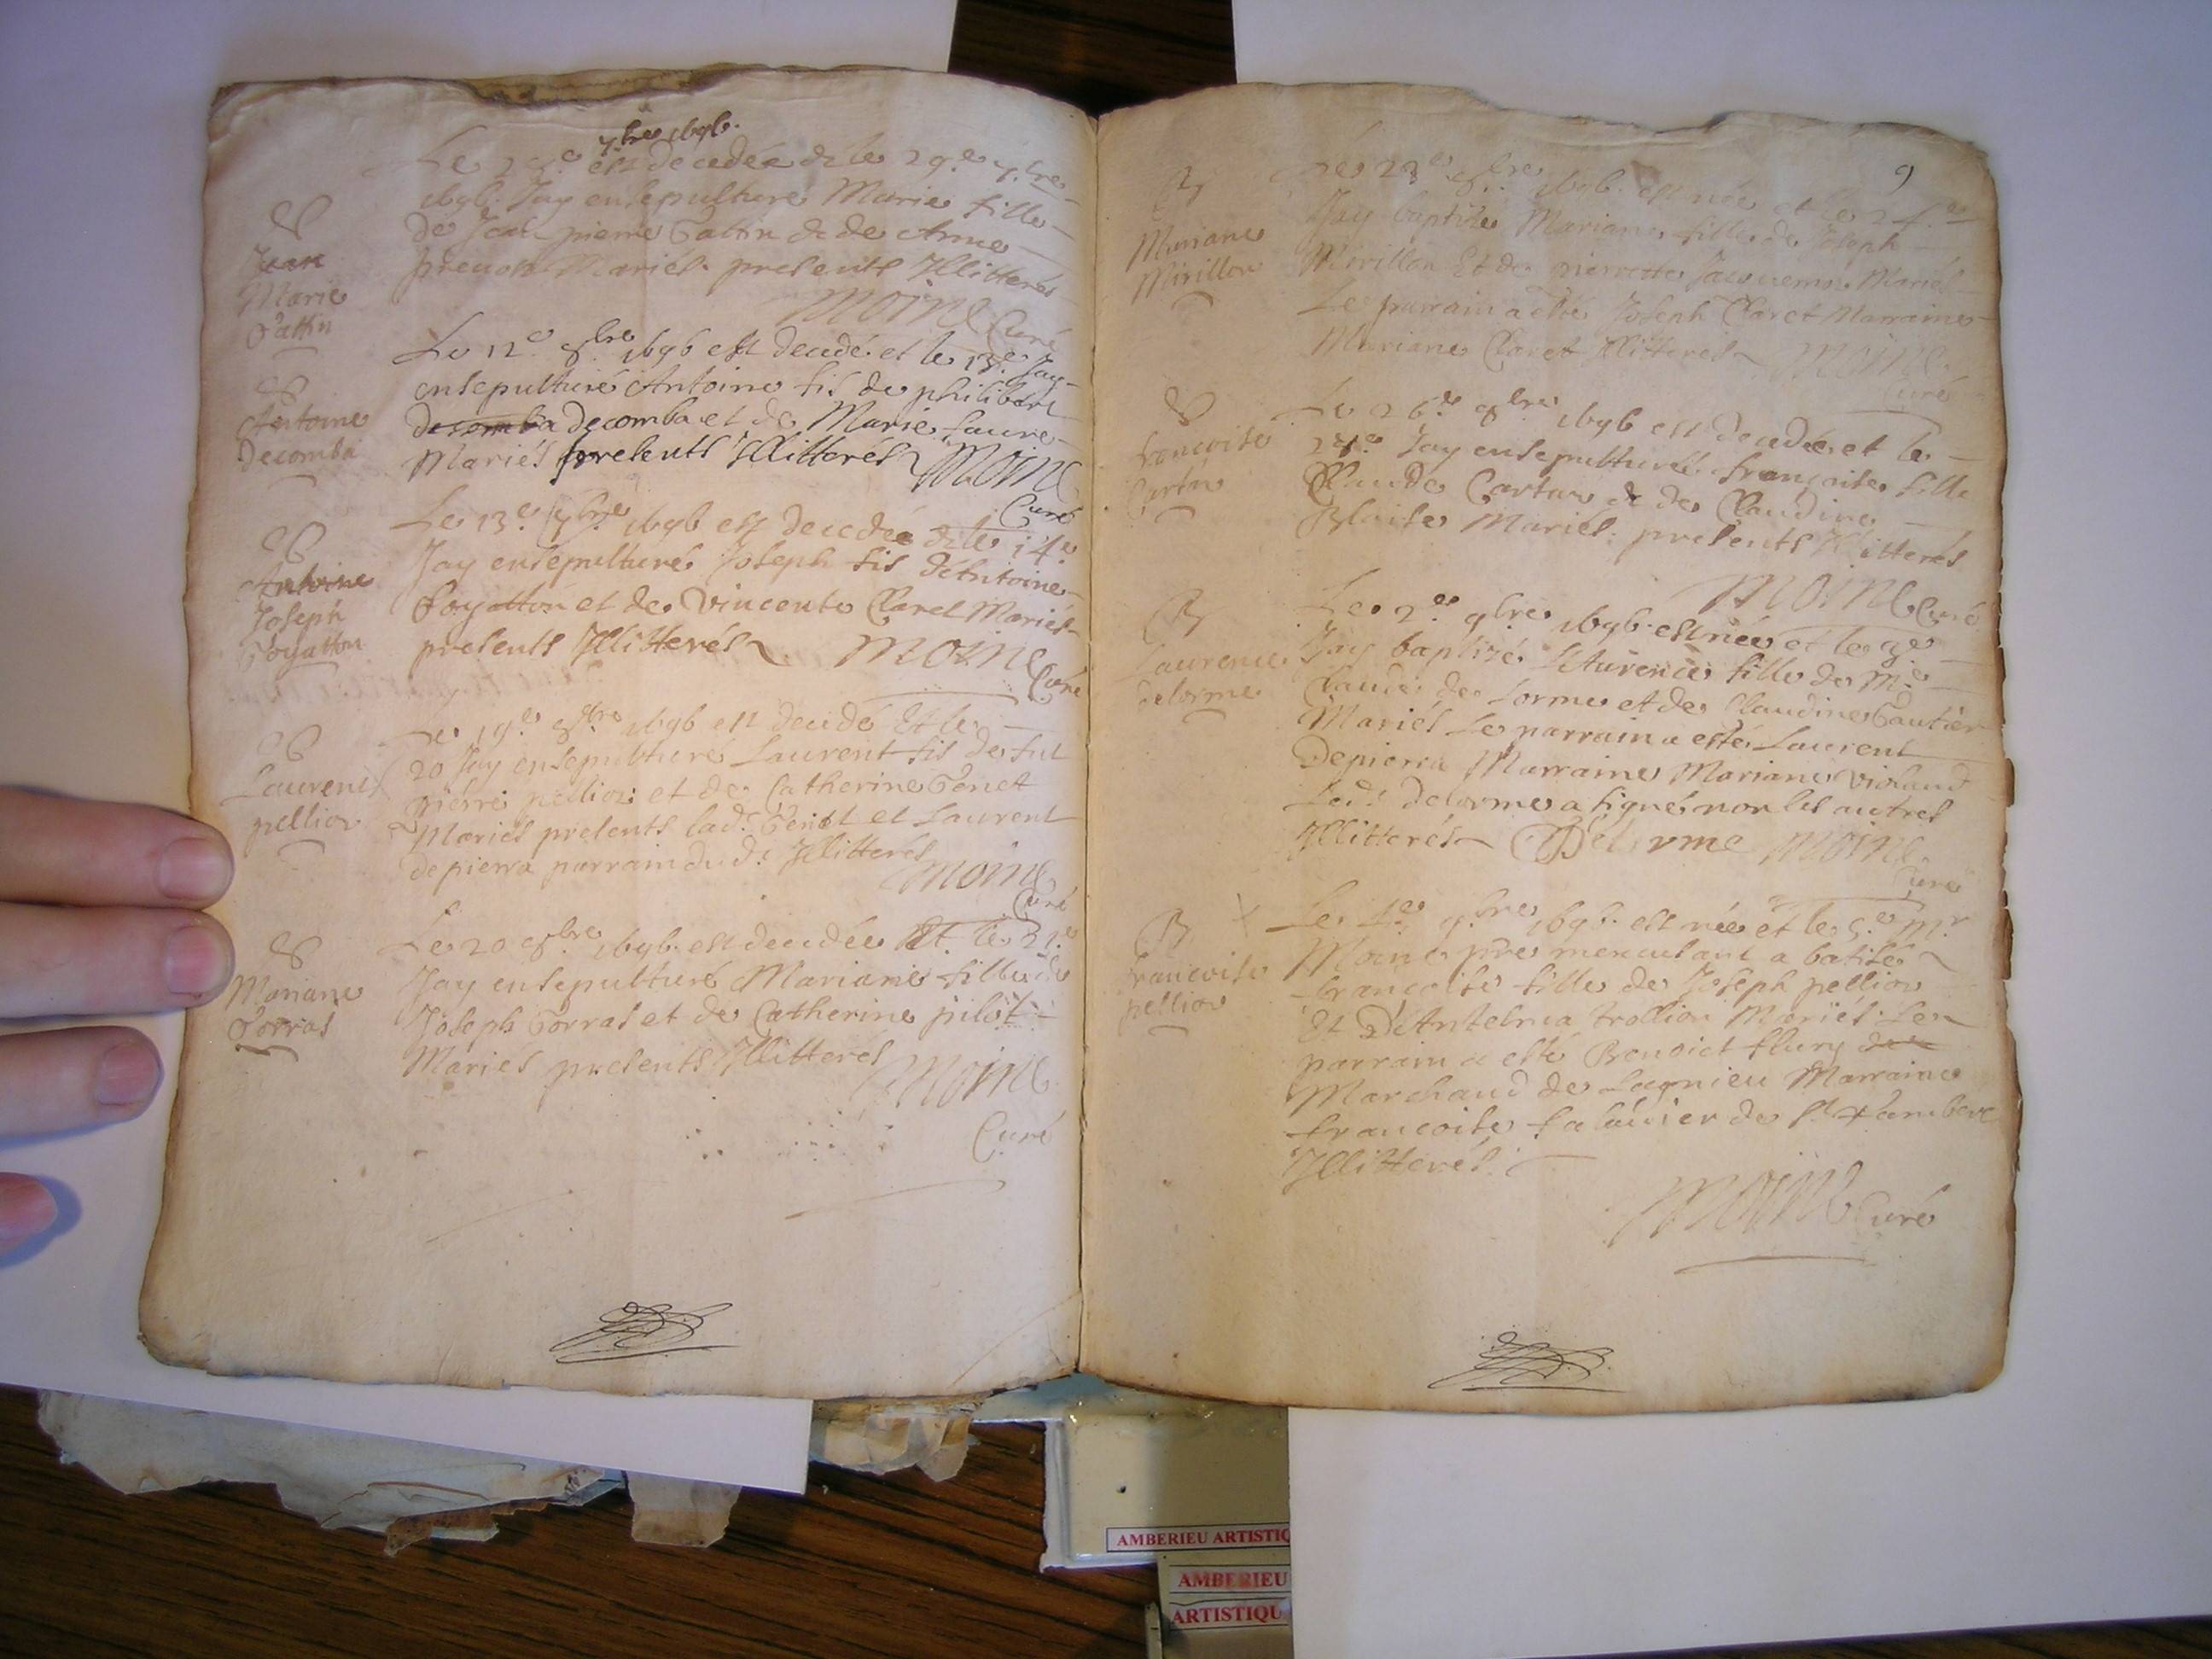 7.bre 1696.
Le 28.e est decedée & le 29.e 7.bre
1696. Jay ensepulturé Marie fille
De Jean pierre Tattin & de Anne
Mariés. presents Illitterés
Moine Curé
Jean
Marie
Tattin
Le 12.e 8.bre 1696 est decedé et le 13.e Jay
ensepulturé Antoine fis de philibert
decomba Decomba et de Marie faure
Mariés presents Illitterés Moine
Curé
Antoine
Decomba
Le 13.e 8.bre 1696 est decedée & le 14.e
Jay ensepulturé Joseph fis d'Antoine
Poyatton et de Vincente Claret Mariés
presents Illitterés Moine
Curé
Antoine
Joseph
Poyatton
Le 19.e 8.bre 1696 est decedé Et le
20 Jay ensepulturé Laurent fis de fut
pierre pellion et de Catherine Tenet
Mariés presents lad.e Tenet et Laurent
depierra parrain dud. Illitterés
Moine
Curé
Laurent
pellion
Le 20 8.bre 1696. est decedée Et le 21.e
Jay ensepulturé Mariane fille de
Joseph Torras et de Catherine pilot
Mariés presents Illitterés
Moine
Curé
Mariane
Torras
9
Le 23.e 8.bre 1696. est née et le 24.e
Jay baptisé Mariane fille de Joseph
Mirillon Et de pierrette Jacquemin Mariés
Le parrain a esté Joseph Claret Marraine
Mariane Claret Illitterés Moine
Curé
B
Mariane
Mirillon
Le 26.e 8.bre 1696 est decedée et le
27.e Jay ensepulturé francoise fille
Claude Cartan & de Claudine
Blaise Mariés. presents Illitterés
Moine Curé
francoise
Cartan
Le 2.e 9.bre 1696. est née et le 3.e
Jay baptizé Laurence fille de M.e
Claude de Lorme et de Claudine Gautier
Mariés Le parrain a esté Laurent
Depierra Marraine Mariane Violand
Led.t Delorme a signé non les autres
Illitterés Delorme Moine
Curé
B
Laurence
delorme
Le 4.e 9.bre 1696. est née et le 5.e M.r
Moine pre a batisé
francoise fille de Joseph pellion
Et D'Antelma trollion Mariés. Le
parrain a esté Benoict flury de
Marchand de Lagnieu Marraine
francoise falavier de St Rambert
Illitterés.
Moine Curé
B
francoise
pellion
AMBERIEU ARTISTIQ
AMBERIEU
ARTISTIQU